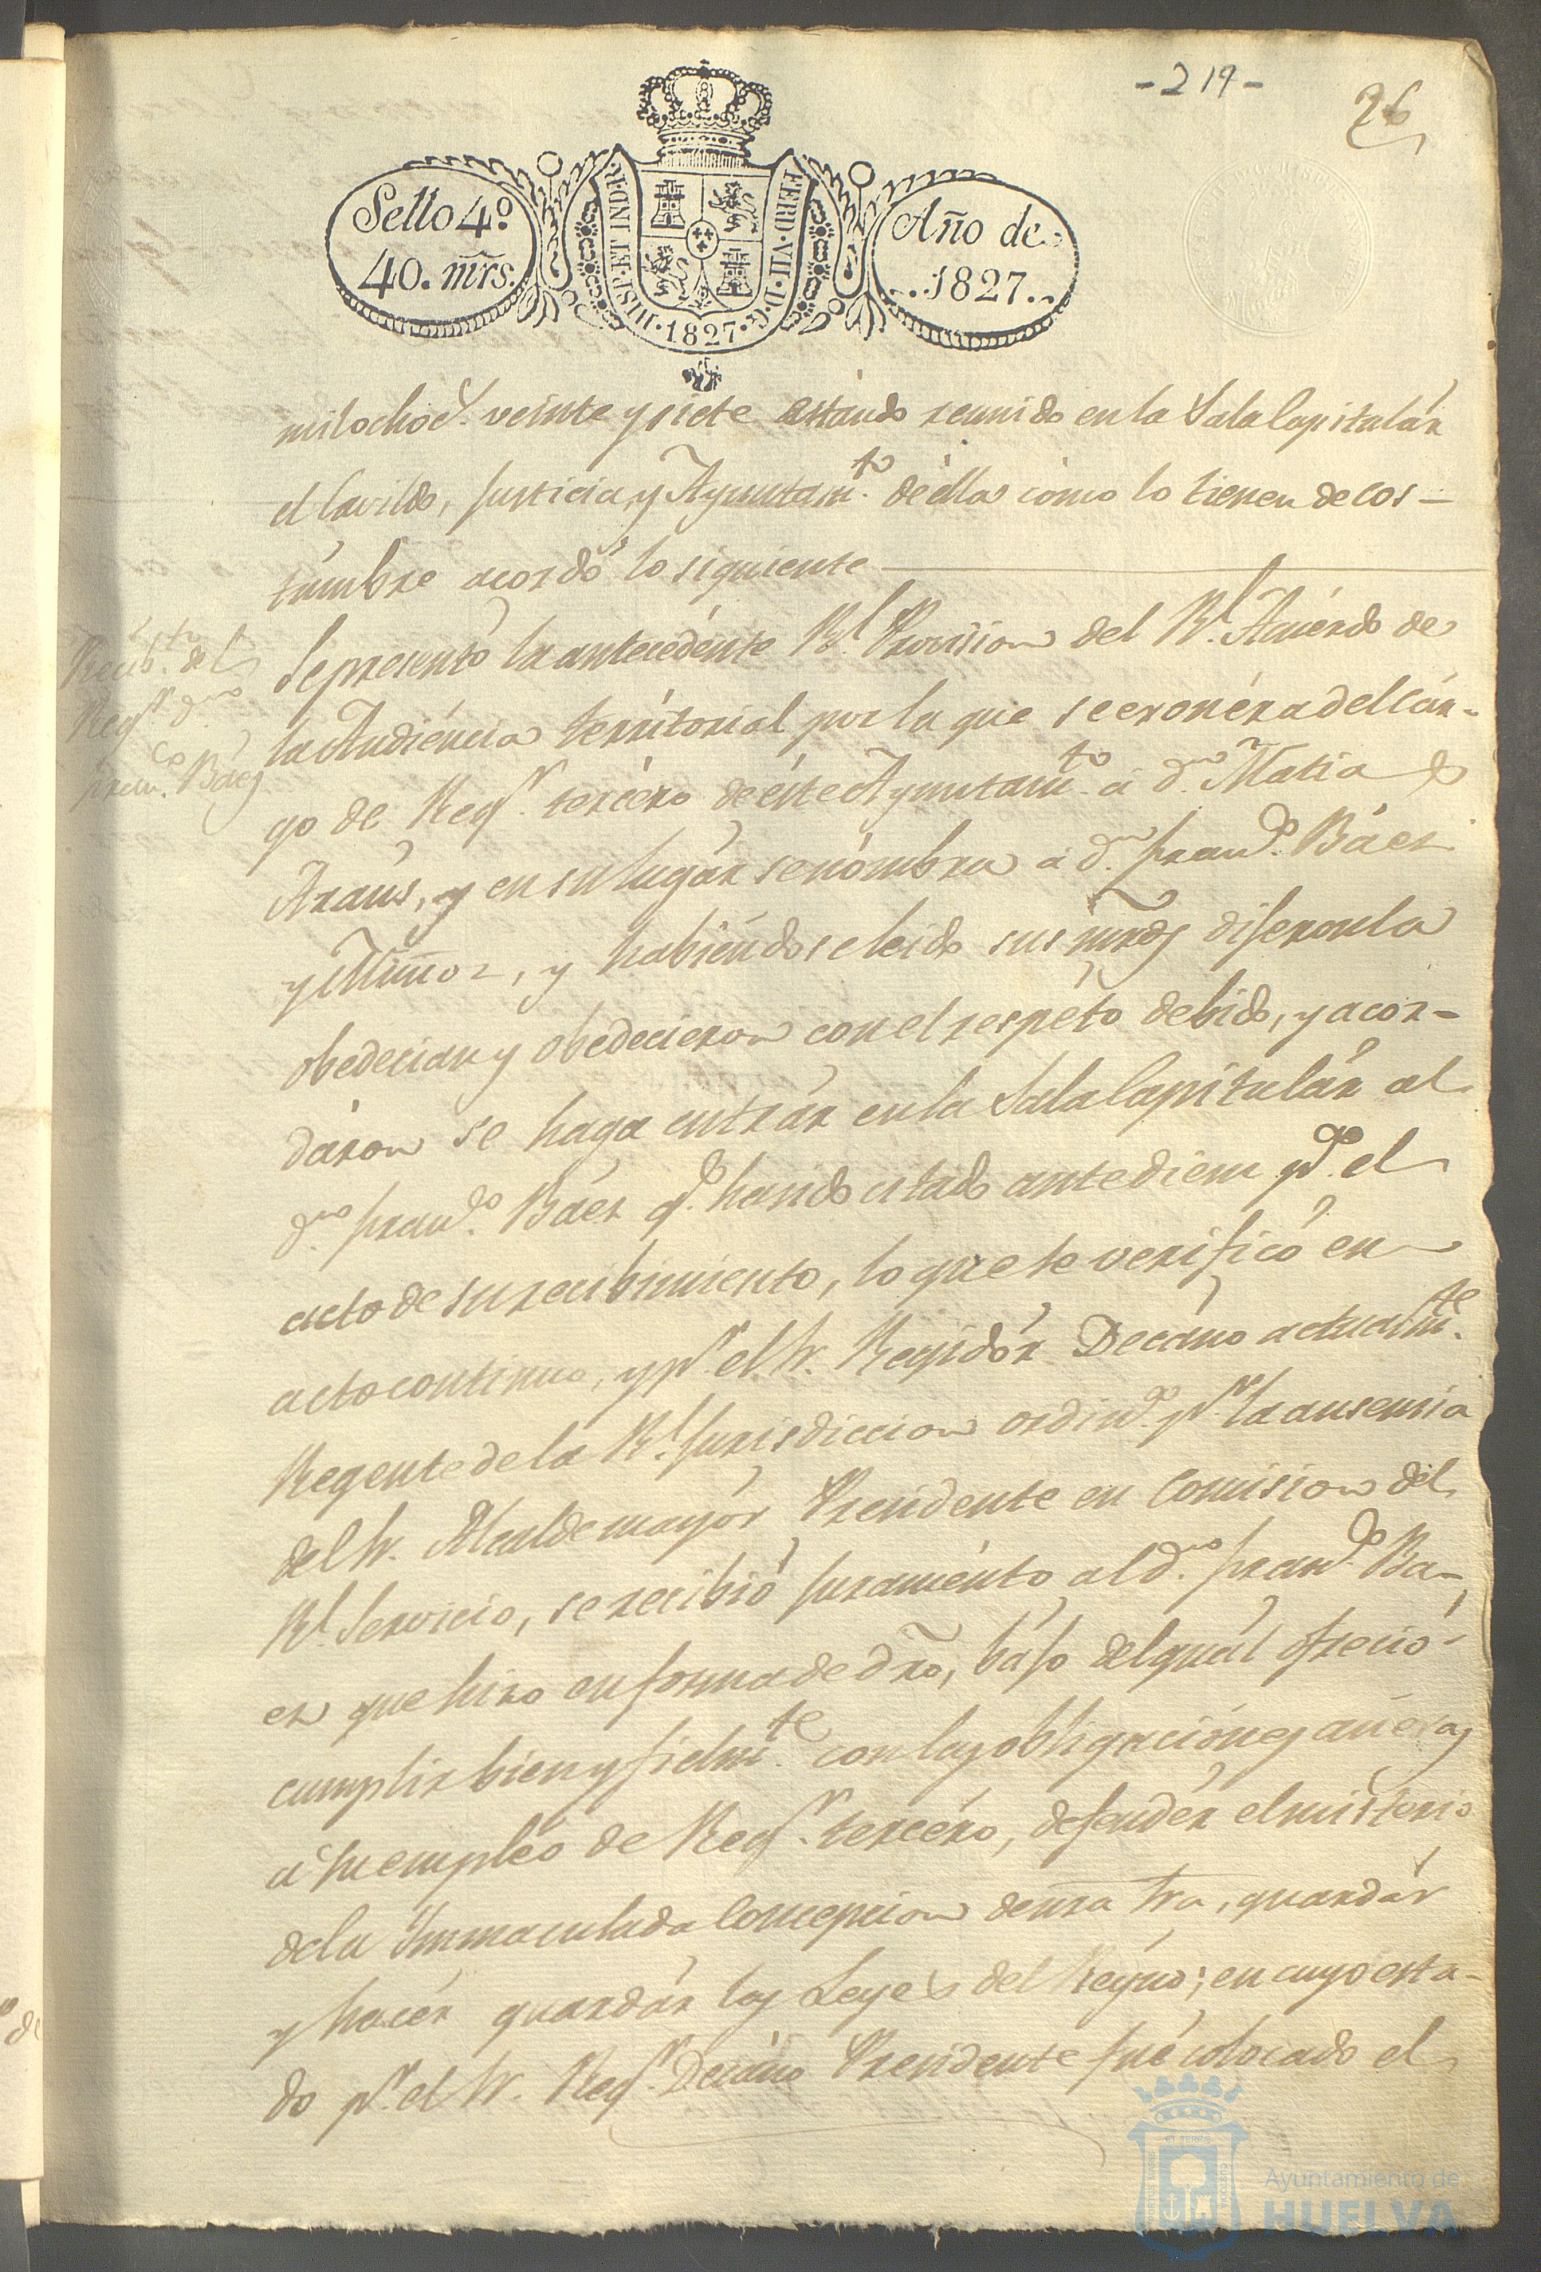 -219-
26
Sello 4º
40. mrs.
HISP. ET IND. R.
FERD. VII. D. G.
1827
Año de
1827.
mil ochocs. veinte y siete estando reunido en la Sala Capitulár
el Cavildo, Justicia, y Ayuntamto. de élla cómo lo tienen de cos-
túmbre acordó lo siguiente
Recibto. del
Regr. dn.
Franco. Báez
Se presentó la antecedénte Rl. Provision del Rl. Acuérdo de
la Audiéncia território por la que se exonéra del Cár-
go de Regr. tercéro de éste Ayuntamto. á dn. Matias
Araus, y en su lugár se nómbra á dn. Franco. Báez
y Muñoz, y habiéndose leido sus mrds dijeron la
obedecian y obedecieron con el respéto debido, y acor-
dáron se haga entrár en la Sala Capitulár al
dn. Franco. Báez qe. ha sido citado antediem pa. el
acto de su recibimiento, lo que se verificó en
acto continuo, y pr. el Sr. Regidór Decáno actualmte.
Regente de la Rl. Jurisdiccion ordina. pr. la ausencia
del Sr. Alcalde mayór Presidente en Comision del
Rl. Servicio, se recibió juraménto al dn. Franco. Ba-
ez que hizo en forma de dro, bájo del quál ofreció
cumplir bien y fielmte. con las obligaciónes anéxas
á su empléo de Regr. tercéro, defendér el mistério
de la Immaculada Concepcion de nra Sra, guardár
y hacér guardár las Leyes del Réyno; en cuyo esta-
do pr. el Sr. Regr. Decáno Presidente fué colocado el
Ayuntamiento de
HUELVA